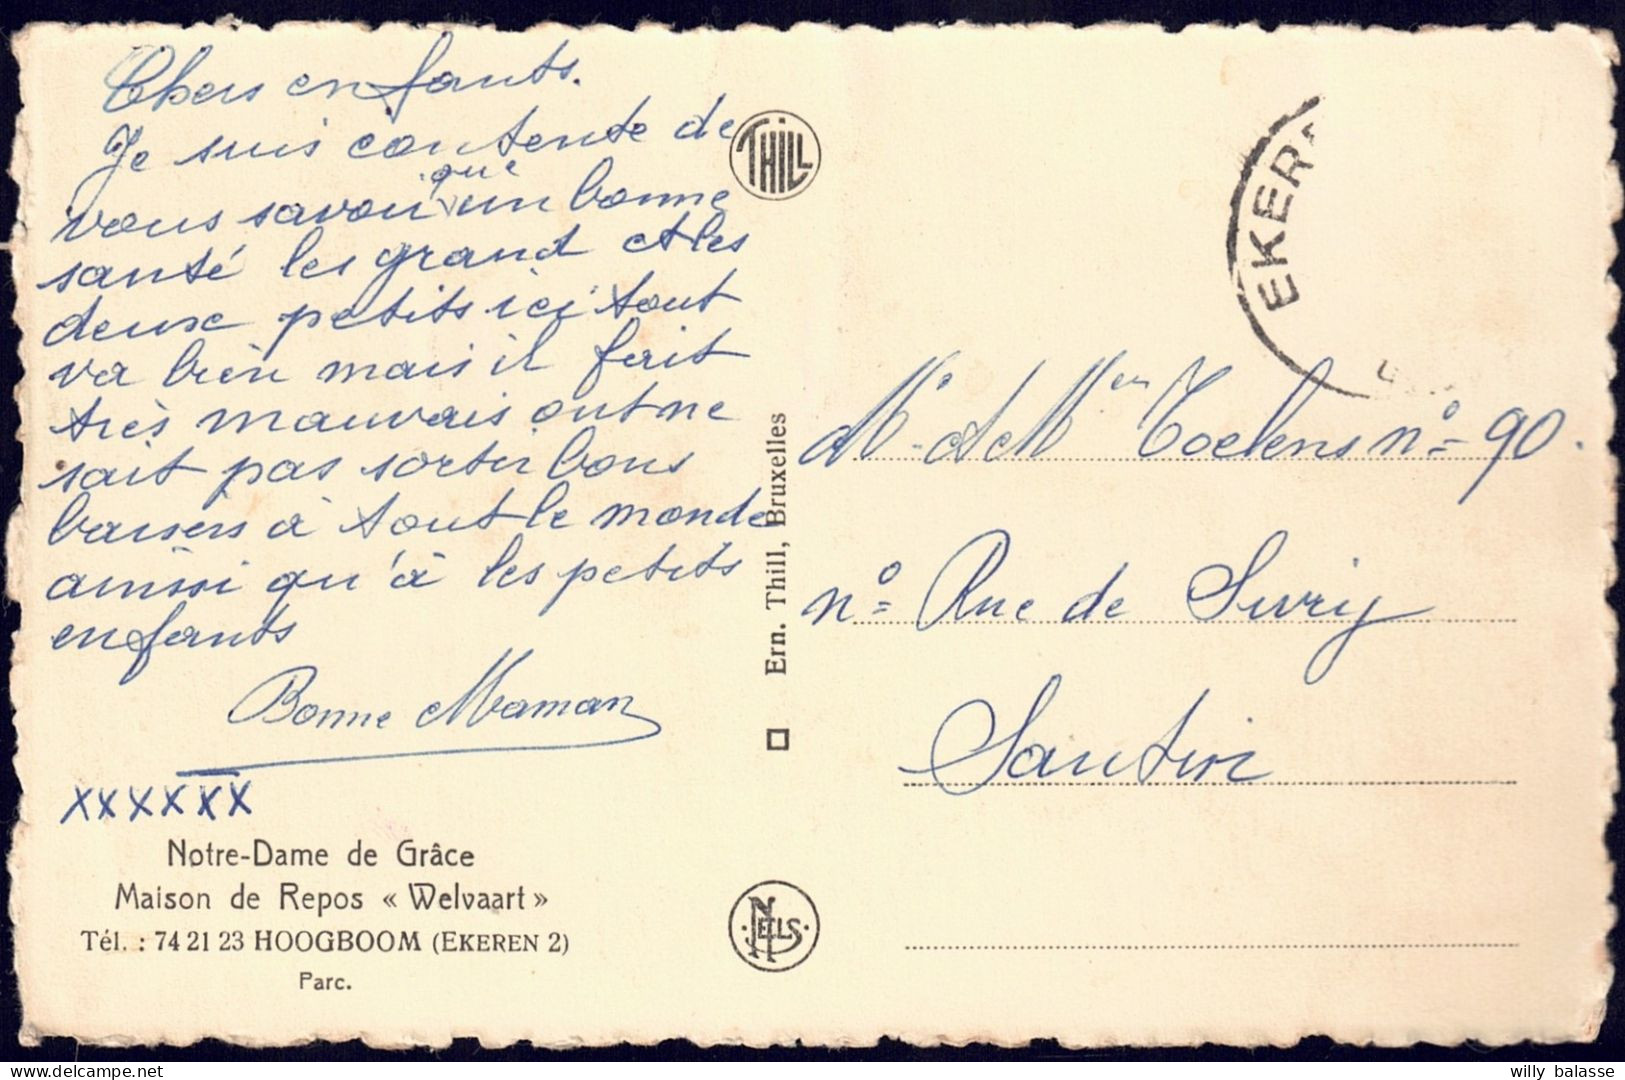 Chers enfants.
Je suis contente de
que
vous savoir un bonne
santé les grand et les
deuse petits ici tout
va bien mais il fait
très mauvais ont ne
sait pas sorter bons
baisers a tout le monde
ainssi qu'à les petits
enfants
Bonne Maman
xxxxxx
Notre-Dame de Grâce
Maison de Repos « Welvaart »
Tél. : 74 21 23 HOOGBOOM (EKEREN 2)
Parc.
THILL
Ern. Thill, Bruxelles
NELS
EKER
Mr et Men Toelens n° 90.
n° Rue de Sivry
Sautin
willy balasse